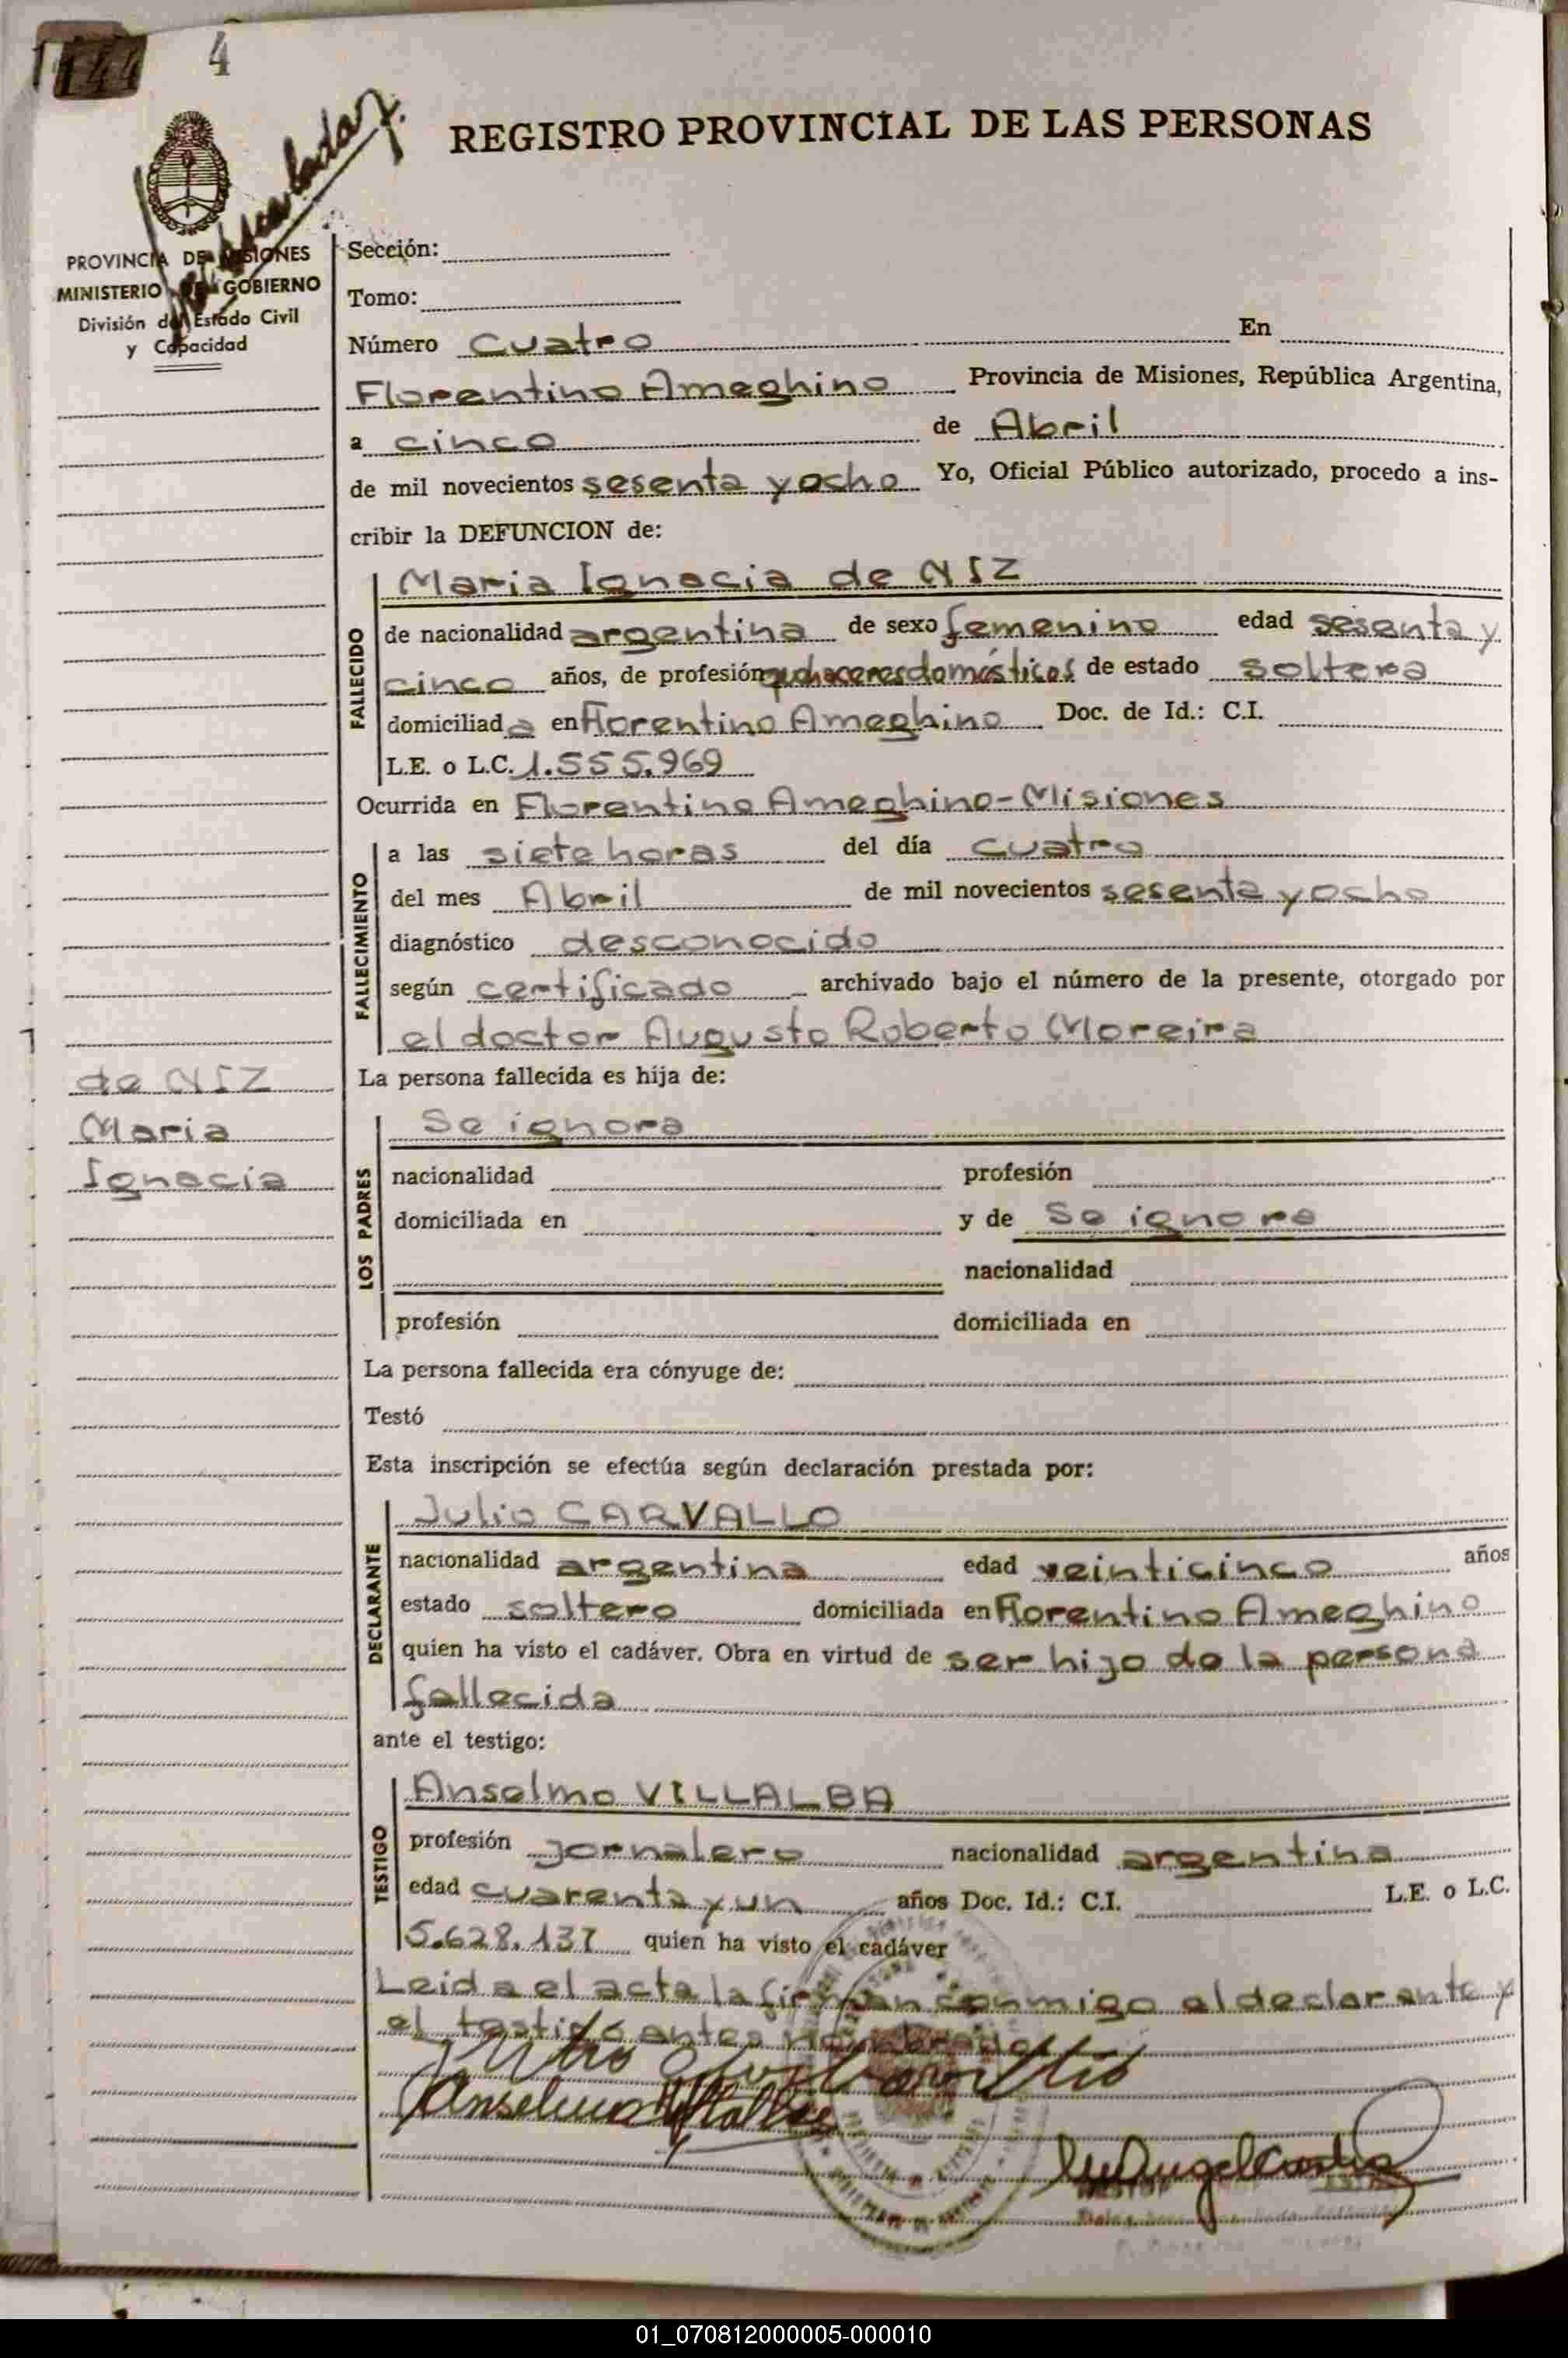 144 4
REGISTRO PROVINCIAL DE LAS PERSONAS
PROVINCIA DE MISIONES
MINISTERIO DE GOBIERNO
División del Estado Civil
y Capacidad
Sección:
Tomo:
Número Cuatro En
Florentino Ameghino Provincia de Misiones, República Argentina,
a cinco de Abril
de mil novecientos sesenta y ocho Yo, Oficial Público autorizado, procedo a ins-
cribir la DEFUNCION de:
FALLECIDO
Maria Ignacia de NIZ
de nacionalidad argentina de sexo femenino edad sesenta y
cinco años, de profesión quehaceres domésticos de estado soltera
domiciliad a en Florentino Ameghino Doc. de Id.: C.I.
L.E. o L.C. 1.555.969
Ocurrida en Florentino Ameghino-Misiones
FALLECIMIENTO
a las siete horas del día cuatro
del mes Abril de mil novecientos sesenta y ocho
diagnóstico desconocido
según certificado archivado bajo el número de la presente, otorgado por
el doctor Augusto Roberto Moreira
de NIZ
Maria
Ignacia
La persona fallecida es hija de:
LOS PADRES
Se ignora
nacionalidad profesión
domiciliada en y de Se ignora
nacionalidad
profesión domiciliada en
La persona fallecida era cónyuge de:
Testó
Esta inscripción se efectúa según declaración prestada por:
DECLARANTE
Julio CARVALLO
nacionalidad argentina edad veinticinco años
estado soltero domiciliada en Florentino Ameghino
quien ha visto el cadáver. Obra en virtud de ser hijo de la persona
fallecida
ante el testigo:
TESTIGO
Anselmo VILLALBA
profesión jornalero nacionalidad argentina
edad cuarenta y un años Doc. Id.: C.I. L.E. o L.C.
5.628.137 quien ha visto el cadáver
Leida el acta la firman conmigo el declarante y
el testigo antes nombrado
Anselmo Villalba
01_070812000005-000010